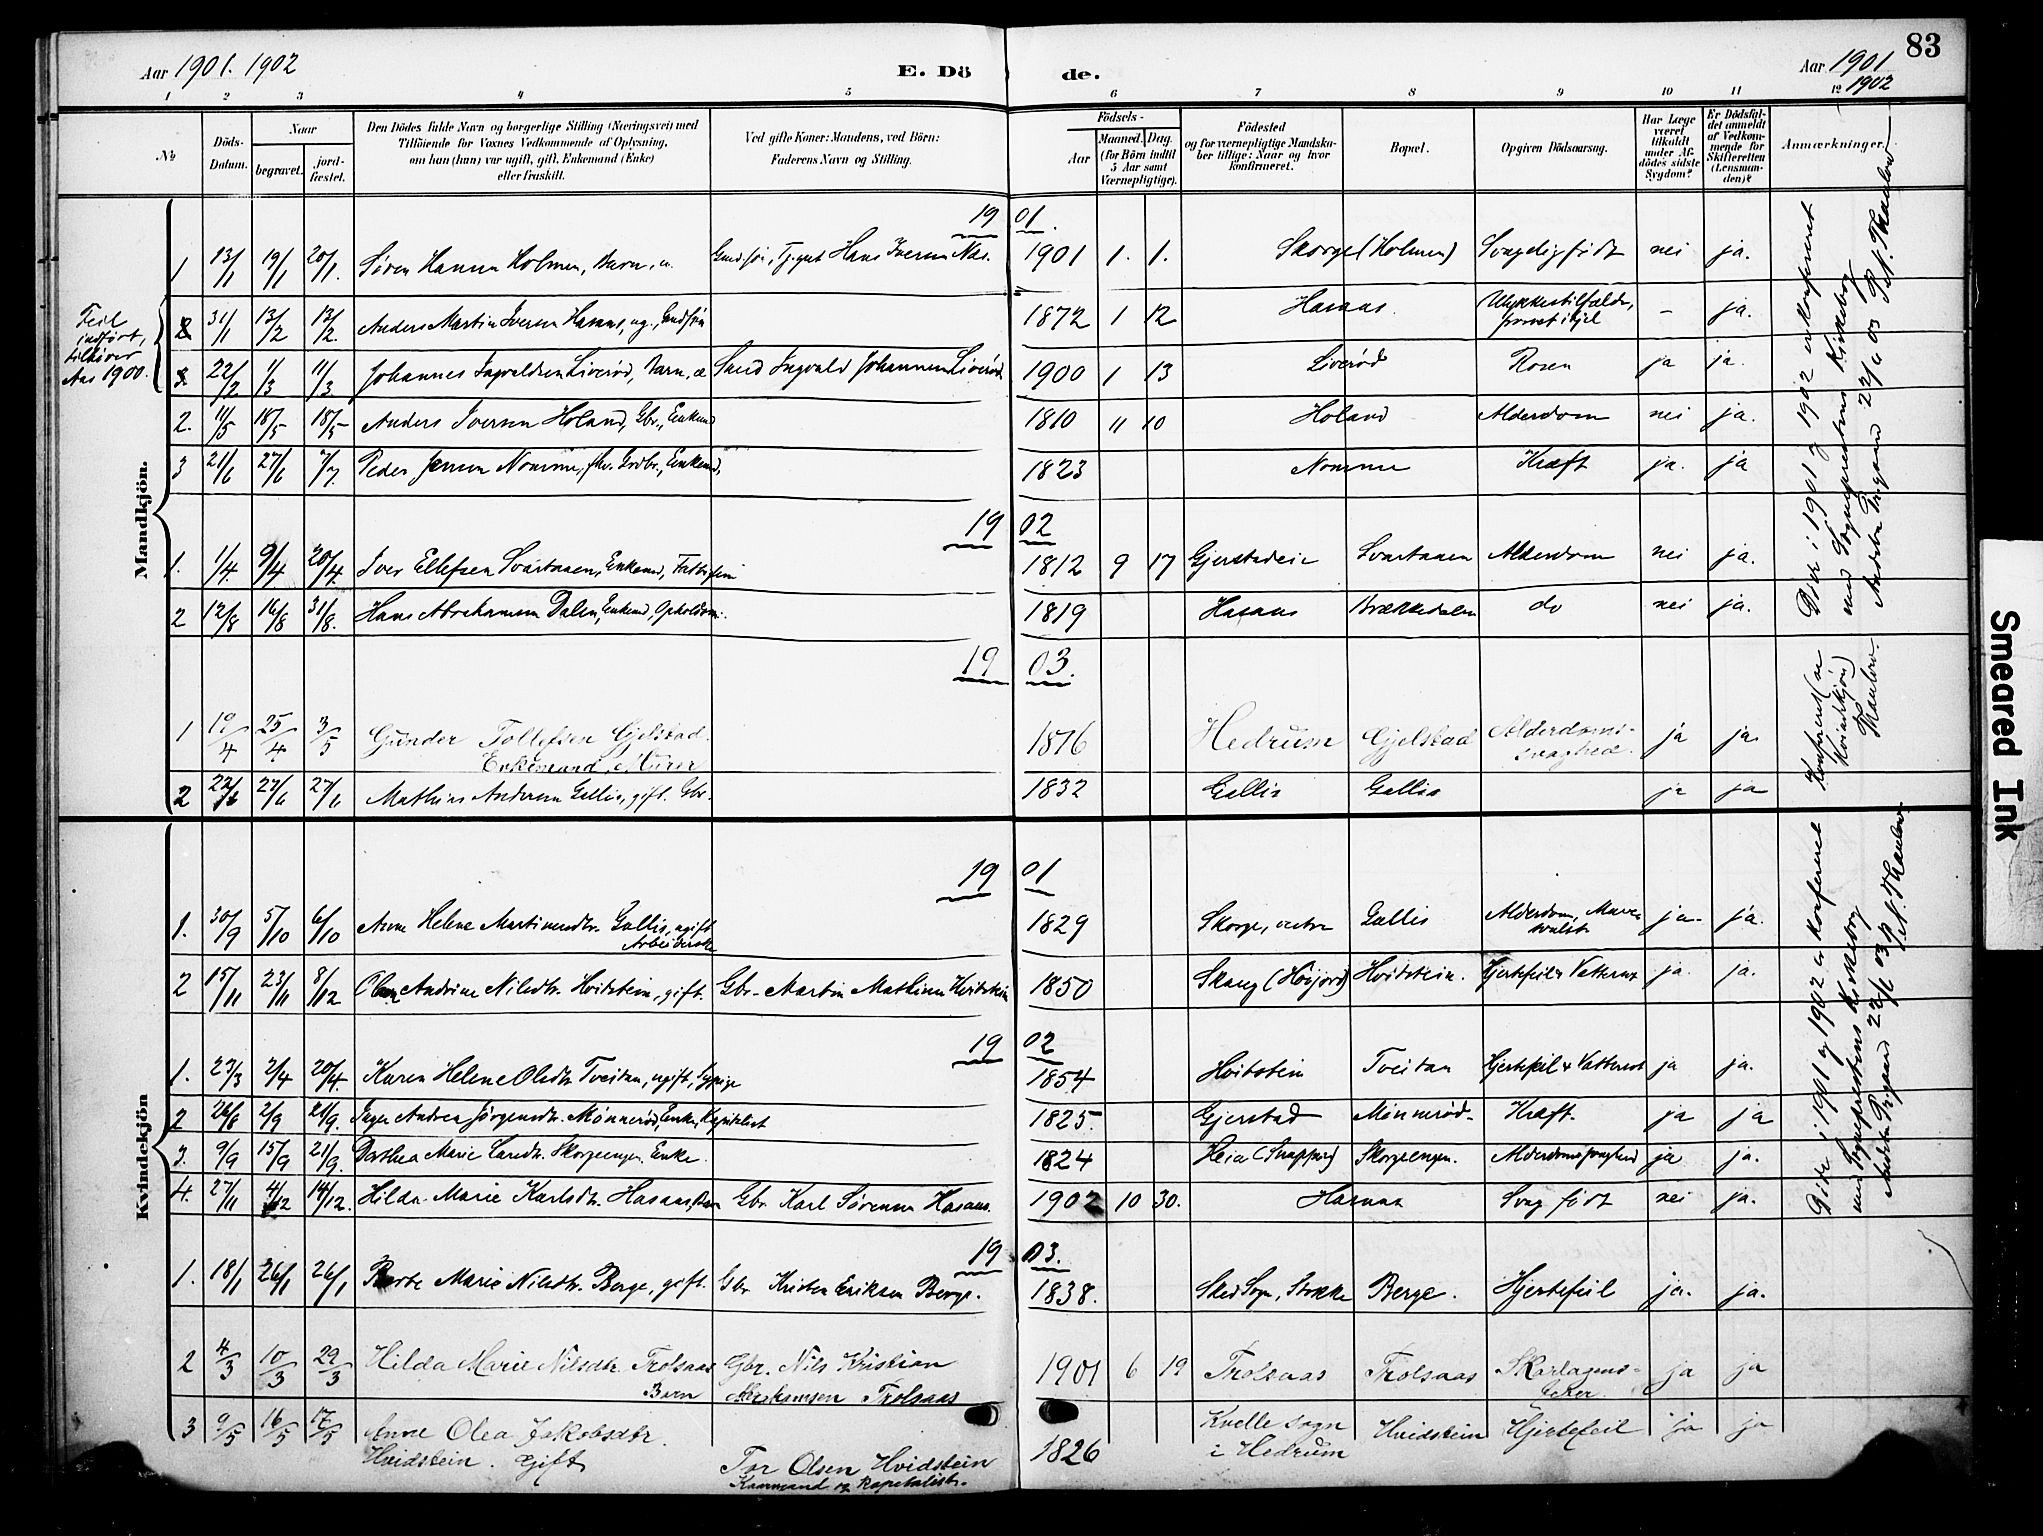 83
Aar 1901. 1902
E. Dö
de.
Aar 1901
1902
1 2 3 4 5 6 7 8 9 10 11 12
No
Döds-Datum.
Naar
begravet.
jord-fæstet.
Den Dödes fulde Navn og borgerlige Stilling (Næringsvei) med
Tilföiende for Voxnes Vedkommende af Oplysning,
om han (hun) var ugift, gift, Enkemand (Enke)
eller fraskilt.
Ved gifte Koner: Mandens, ved Börn:
Faderens Navn og Stilling.
Födsels-
Aar
Maaned. Dag.
(for Börn indtil
5 Aar samt
Værnepligtige).
Födested
og for værnepligtige Mandska-
ber tillige: Naar og hvor
konfirmeret.
Bopæl.
Opgiven Dödsaarsag.
Har Læge
været
tilkaldt
under Af-
dödes sidste
Sygdom?
Er Dödsfal-
det anmeldt
af Vedkom-
mende for
Skifteretten
(Lensman-
den)?
Anmærkninger.
Mandkjön.
19 01.
1 13/1 19/1 20/1. Søren Hansen Holmen, Barn, u. Hans Iversen Næs. 1901 1. 1. Skorge (Holmen) Svagelig født nei ja.
Feil
indført,
tilhører
Aar 1900.
2 31/1 13/2 13/2. Anders Martin Iversen Hasaas, ug., Gaardsøn 1872 1 12 Hasaas. Ulykkestilfælde, ihjel – ja.
3. 22/2 1/3 11/3 Johannes Ingvaldsen Liverød, Barn, æ Ingvald Johannesen Liverød 1900 1 13 Liverød Rosen ja ja.
2. 11/5 18/5 18/5 Anders Iversen Holand, Gbr., Enkemd 1810 11 10 Holand Alderdom nei ja.
3 21/6 27/6 7/7 Peder Jensen Nomme, fhv. Grdbr., Enkemd, 1823 Nomme Kræft ja. ja
19 02
1. 1/4 9/4 20/4. Iver Ellefsen Svartaaen, Enkemd, 1812 9 17 Gjerstadeie Svartaaen Alderdom nei ja.
2 12/8 16/8 31/8. Hans Abrahamsen Dalen, Enkemd, 1819 Hasaas Brækkedalen do nei ja.
19 03.
1 19/4 25/4 3/5 Gunder Tollefsen Gjelstad.
Enkemand, Murer 1816 Hedrum Gjelstad Alderdoms-
svaghed. ja ja
2 22/6 27/6 27/6 Mathias Andersen Gallis, gift. Gbr. 1832 Gallis Gallis ja ja
Døde i 1901 og 1902 er konfereret
med Sogneprestens Kirkebog
22/6 03 Thaulow
Konfereret (se
Kvindekjøn)
Thaulow.
Kvindekjön
19 01
1. 30/9 5/10 6/10 Anne Helene Martinsdtr. Gallis, ugift
Arbeiderske 1829 Skorge, østre Gallis Alderdom, ja. ja.
2 15/11 23/11 8/12 Andrine Nilsdtr. Hvidstein, gift. Gbr. Martin Mathisen Hvidstein 1850 Skaug (Høijord) Hvidstein. Hjertefeil & Vattersot ja. ja.
19 02
1. 23/3 2/4 20/4. Karen Helene Olsdtr Tveitan, ugift, Sypige 1854 Hvitstein Tveitan Hjertefeil & Vattersot ja ja.
2 26/8 2/9 21/9. Inger Andrea Jörgensdtr. Mønnerød, Enke, Kapitalist 1825. Gjerstad Mønnerød. Kræft. ja ja
3. 9/9 15/9 21/9. Dorthea Marie Larsdtr. Skorgeengen. Enke. 1824 Heia Skorgeengen. Alderdomssvaghed ja ja.
4. 27/11 4/12 14/12. Hilda Marie Karlsdtr. Hasaas, Barn Gbr. Karl Sørensen Hasaas. 1902 10 30. Hasaas Svag født nei ja.
19 03.
1. 18/1 26/1 26/1 Berte Marie Nilsdtr. Berge, gift. Gbr Kristen Eriksen Berge. 1838. Sked Sogn, Stokke Berge. Hjertefeil ja. ja.
2 4/3 10/3 29/3 Hilda Marie Nilsdtr. Trolsaas
Barn Gbr. Nils Kristian
Abrahamsen Trolsaas 1901 6 19 Trolsaas Trolsaas ja ja
3 9/5 16/5 17/5 Anne Olea Jakobsdtr.
Hvidstein. Gift Tor Olsen Hvidstein
Kaarmand og Kapitalist. 1826 Kvelle sogn
i Hedrum Hvidstein Hjertefeil ja ja
Døde i 1901 og 1902 er konfereret
med Sogneprestens Kirkebog
22/6 03 Thaulow
Smeared Ink